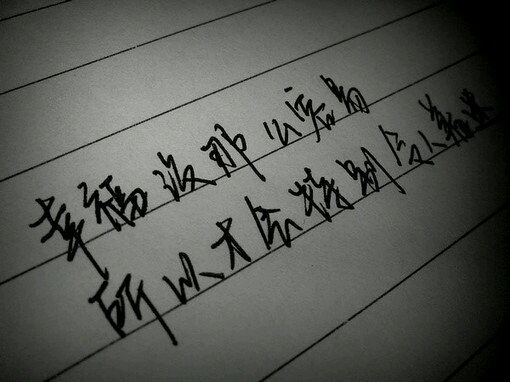 幸福没那么容易
所以才会特别令人着迷